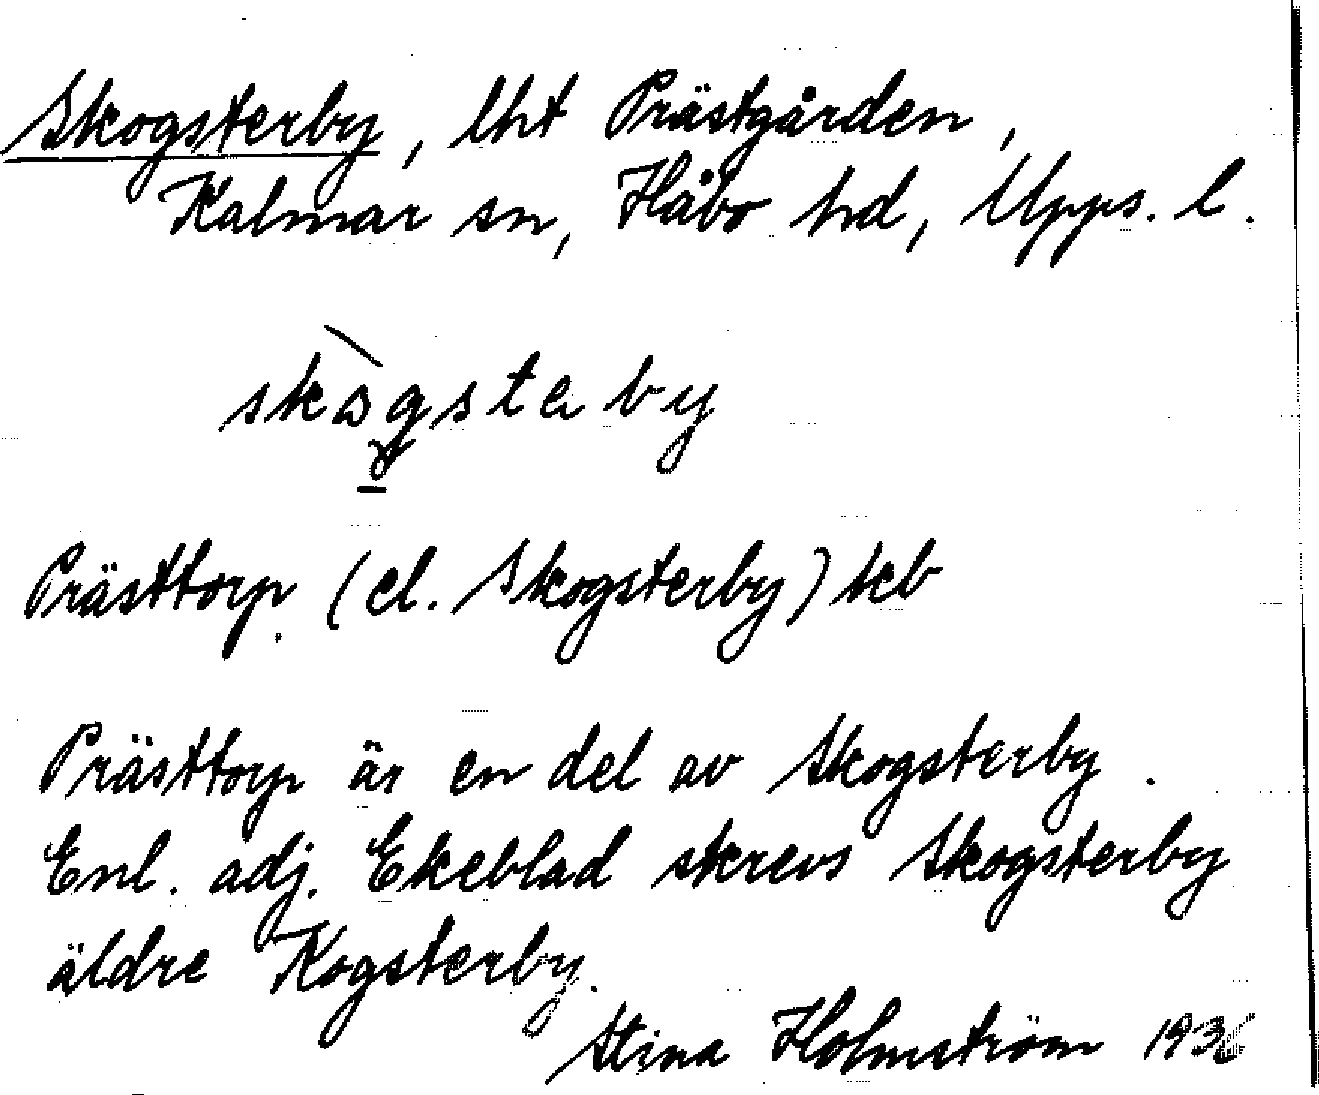 Skogsterby, lht Prästgården,
Kalmar sn, Håbo hd, Upps. l.
Prästtorp (el. Skogsterby) kb
Prästtorp är en del av Skogsterby.
Enl. adj. Ekeblad skrevs Skogsterby
äldre Kogsterby.
Stina Holmström 1936